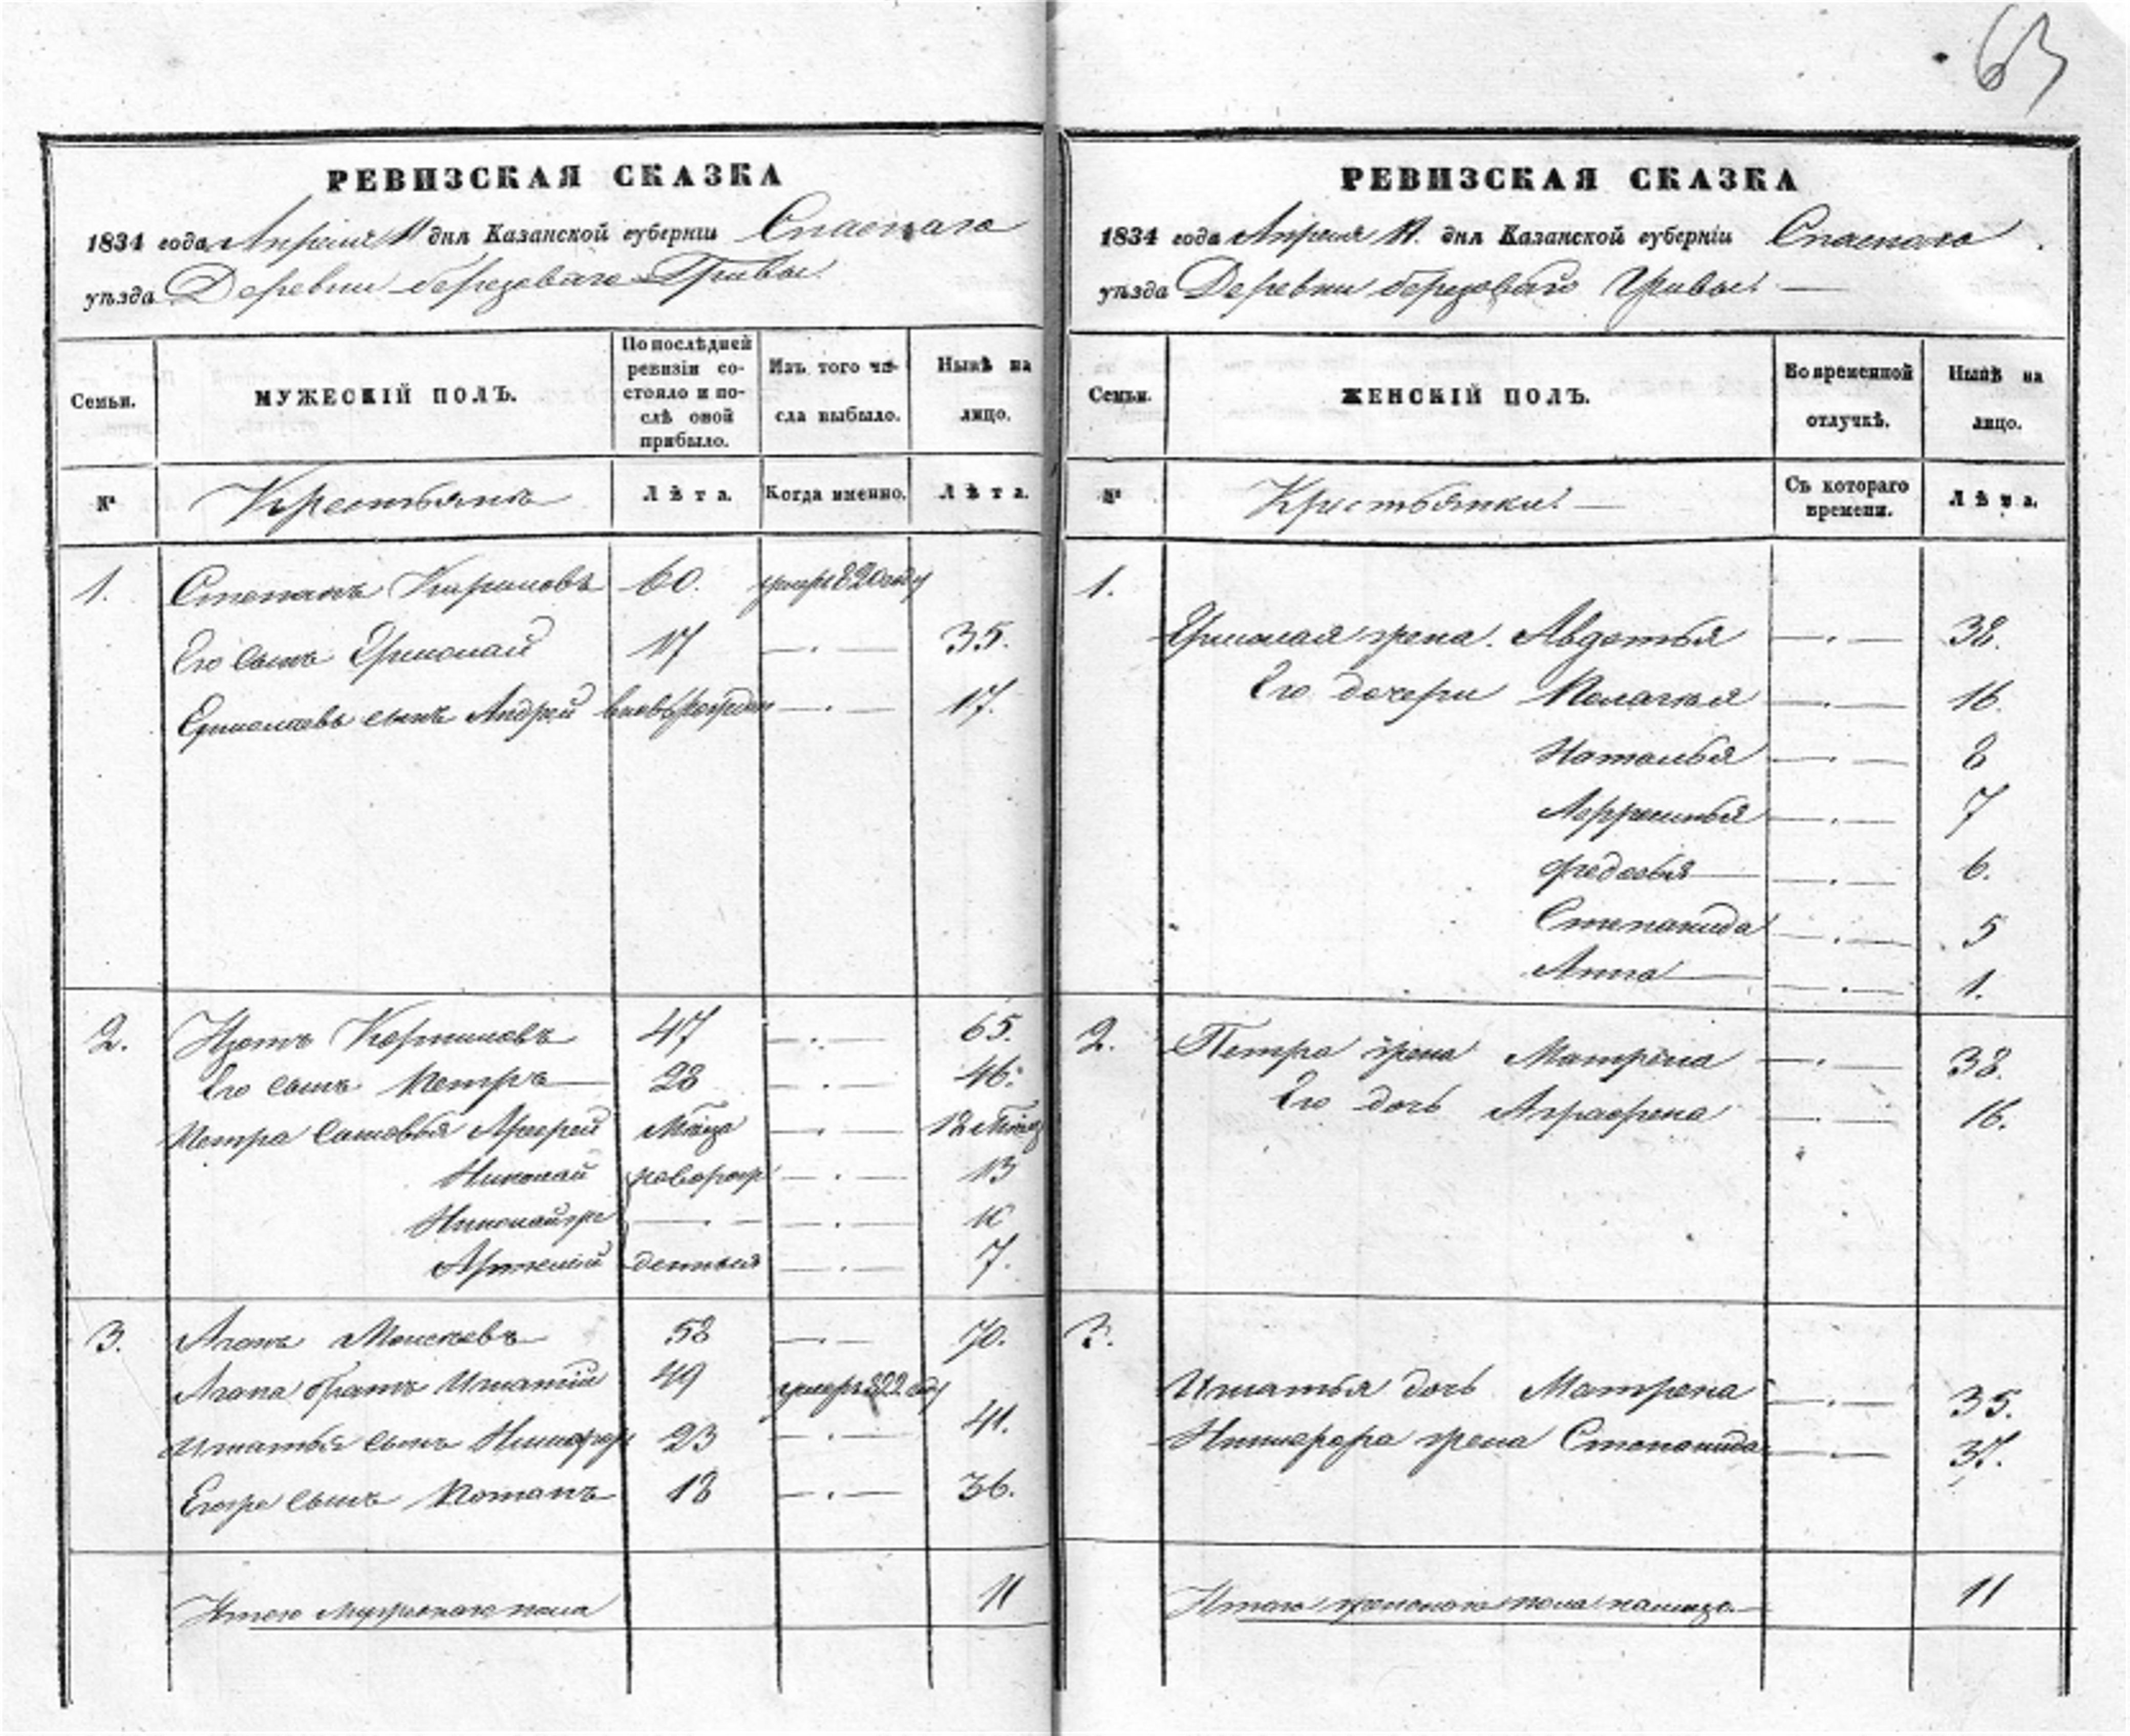 63
РЕВИЗСКАЯ СКАЗКА
1834 года Апреля 11 дня Казанской губерніи Спаскаго
уѣзда Деревни березоваго Гривы
Семьи.
МУЖЕСКІЙ ПОЛЪ.
По послѣдней ревизіи состояло и послѣ оной прибыло.
Изъ того числа выбыло.
Нынѣ на лицо.
№
Крестьянъ
Лѣта.
Когда именно.
Лѣта.
1. Степанъ 60. умеръ 820 году
Его сынъ Ермолай 17 35.
Ермолаевъ сынъ Андрей вновь рожден 17.
2. Изотъ 47 65.
Его сынъ Петръ 28 46.
Петра сыновья
Николай новорож 13
Николай же 10
Артемій денныя 7.
3. Агапъ 58 70.
Агапа братъ Игнатій 49 умеръ 822 году
Игнатья сынъ Никифоръ 23 41.
сынъ Потапъ 18 36.
Итого мужескаго пола 11
РЕВИЗСКАЯ СКАЗКА
1834 года Апреля 11. дня Казанской губерніи Спаскаго
уѣзда Деревни березоваго Гривы
Семьи.
ЖЕНСКІЙ ПОЛЪ.
Во временной отлучкѣ.
Нынѣ на лицо.
№
Крестьянки
Съ котораго времени.
Лѣта.
1.
Ермолая жена Авдотья 38.
Его дочери Пелагея 16
Наталья 8
7
Федосья 6.
Степанида 5
Анна 1.
2. Петра жена Матрена 38.
Его дочь Аграфена 16.
3.
Игнатья дочь Матрена 35.
Никифора жена Степанида 37.
Итого женскаго пола налицо 11